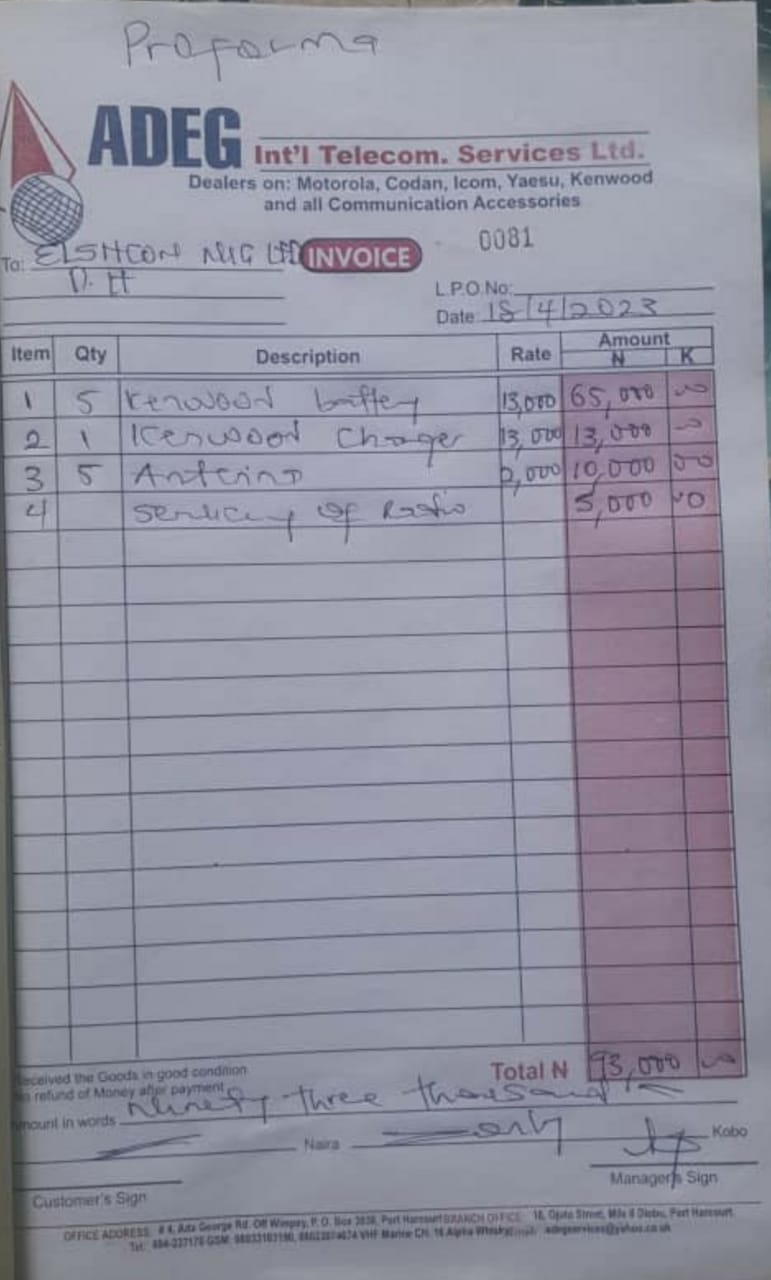 Proforma
ADEG
Int'l Telecom. Services Ltd.
Dealers on: Motorola, Codan, Icom, Yaesu, Kenwood
and all Communication Accessories
To: ELSHCON NIG LTD
P. H
INVOICE
0081
L.P.O.No:
Date 18/4/2023
Item Qty Description Rate Amount
N K
1 5 Kenwood battery 13,000 65,000 00
2 1 Kenwood Charger 13,000 13,000 00
3 5 Antenna 2,000 10,000 00
4 Servicing of Radio 5,000 00
Total N 93,000 00
Received the Goods in good condition
No refund of Money after payment
Amount in words Ninety three thousand
Naira only Kobo
Customer's Sign
Manager's Sign
OFFICE ADDRESS: # 4, Ada George Rd. Off Wimpey, P. O. Box Port Harcourt BRANCH OFFICE: Street, Mile Diobu, Port Harcourt.
Tel: GSM: VHF Marine CH. 16 Alpha Whisky adegservices@yahoo.co.uk